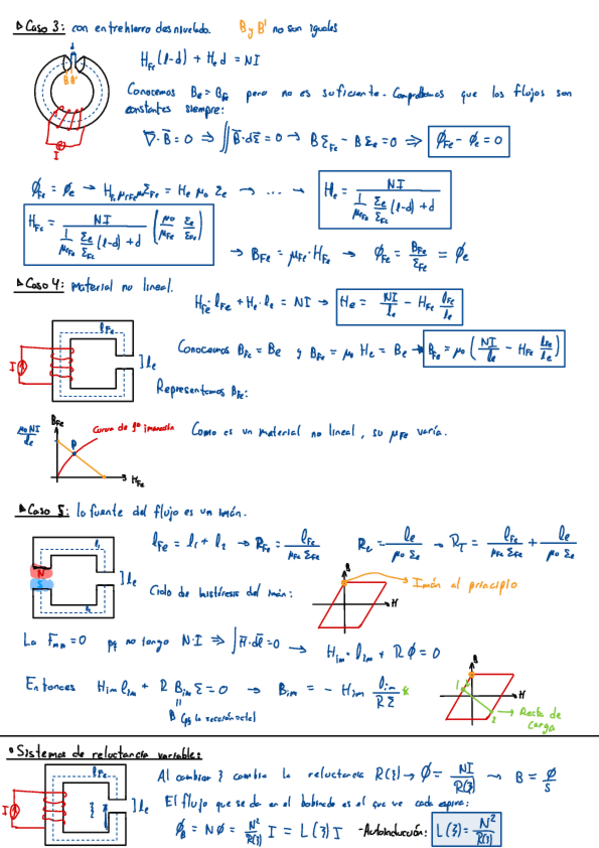 Caso 3: con entrehierro desnivelado. B y B' no son iguales
H_Fe (l-d) + H_e d = NI
B B'
I
Conocemos B_e = B_Fe pero no es suficiente. Comprobamos que los flujos son
constantes siempre:
∇·B̄ = 0 ⇒ ∬ B̄·dΣ̄ = 0 → B Σ_Fe - B Σ_e = 0 ⇒ ϕ_Fe - ϕ_e = 0
ϕ_Fe = ϕ_e → H_Fe μ_rFe μ Σ_Fe = H_e μ_0 Σ_e → ... → H_e = NI / (1/μ_rFe Σ_e/Σ_Fe (l-d) + d)
H_Fe = NI / (1/μ_rFe Σ_e/Σ_Fe (l-d) + d) (μ_0/μ_Fe Σ_e/Σ_Fe)
→ B_Fe = μ_Fe · H_Fe → ϕ_Fe = B_Fe/Σ_Fe = ϕ_e
Caso 4: material no lineal.
H_Fe · l_Fe + H_e · l_e = NI → H_e = NI/l_e - H_Fe l_Fe/l_e
l_Fe
I
l_e
Conocemos B_Fe = B_e y B_Fe = μ_0 H_e = B_e → B_Fe = μ_0 (NI/l_e - H_Fe l_Fe/l_e)
Representamos B_Fe:
B_Fe
μ_0 NI/l_e
P
Curva de 1ª imanación
H_Fe
Como es un material no lineal, su μ_Fe varía.
Caso 5: la fuente del flujo es un imán.
l_Fe = l_1 + l_2 → R_Fe = l_Fe/(μ_Fe Σ_Fe) R_e = l_e/(μ_0 Σ_e) → R_T = l_Fe/(μ_Fe Σ_Fe) + l_e/(μ_0 Σ_e)
l_1
N
S
l_e
l_2
Ciclo de histéresis del imán:
B
H
Imán al principio
La F_mm = 0 pq no tengo N·I ⇒ ∫ H̄·dl̄ = 0 → H_im · l_im + R ϕ = 0
Entonces H_im l_im + R B_im Σ = 0 → B_im = - H_im l_im/(R Σ)
B
H
1
2
Recta de
carga
Sistemas de reluctancia variable:
l_Fe
I
l_e
Al cambiar ξ cambia la reluctancia R(ξ) → ϕ = NI/R(ξ) → B = ϕ/S
El flujo que se da en el bobinado es el que ve cada espira:
ϕ_B = Nϕ = N²/R(ξ) I = L(ξ) I - Autoinducción: L(ξ) = N²/R(ξ)